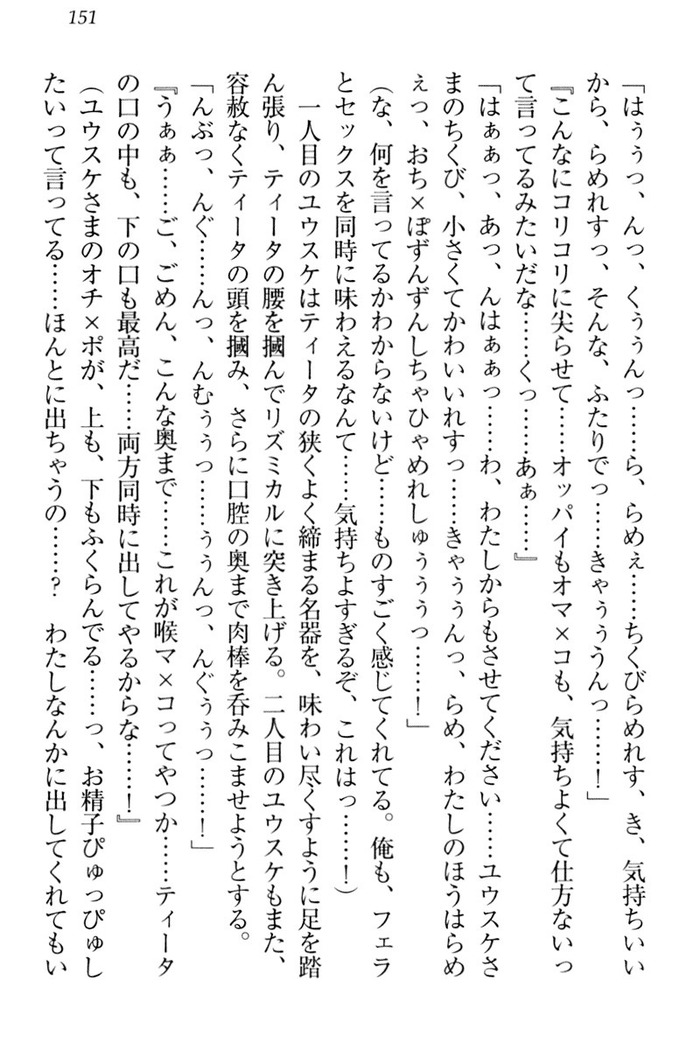 151
「はぅぅっ、んっ、くぅぅんっ……ら、らめぇ……ちくびらめれす、き、気持ちいい
から、らめれすっ、そんな、ふたりでっ……きゃぅぅうんっ……！」
『こんなにコリコリに尖らせて……オッパイもオマ×コも、気持ちよくて仕方ないっ
て言ってるみたいだな……くっ……あぁ……』
「はぁぁっ、あっ、んはぁぁっ……わ、わたしからもさせてください……ユウスケさ
まのちくび、小さくてかわいいれすっ……きゃぅぅんっ、らめ、わたしのほうはらめ
ぇっ、おち×ぽずんずんしちゃひゃめれしゅぅぅぅっ……！」
(な、何を言ってるかわからないけど……ものすごく感じてくれてる。俺も、フェラ
とセックスを同時に味わえるなんて……気持ちよすぎるぞ、これはっ……！)
一人目のユウスケはティータの狭くよく締まる名器を、味わい尽くすように足を踏
ん張り、ティータの腰を摑んでリズミカルに突き上げる。二人目のユウスケもまた、
容赦なくティータの頭を摑み、さらに口腔の奥まで肉棒を呑みこませようとする。
「んぶっ、んぐ……んっ、んむぅぅっ……ぅぅんっ、んぐぅぅっ……！」
『うぁぁ……ご、ごめん、こんな奥まで……これが喉マ×コってやつか……ティータ
の口の中も、下の口も最高だ……両方同時に出してやるからな……！』
(ユウスケさまのオチ×ポが、上も、下もふくらんでる……っ、お精子ぴゅっぴゅし
たいって言ってる……ほんとに出ちゃうの……？　わたしなんかに出してくれてもい